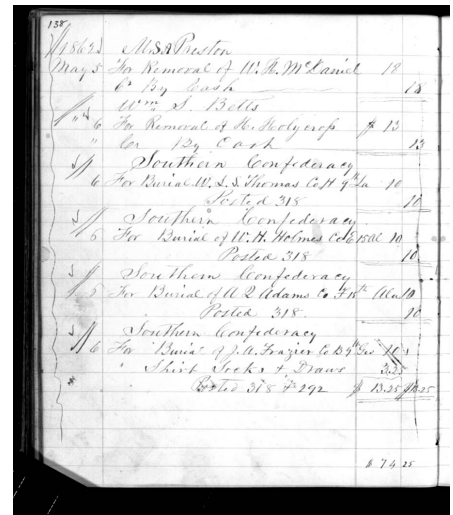 138
1862 M. S. A Preston
May 5 For Removal of W. H. McDaniel 18
Cr By Cash 18
Wm S. Bells
" 6 For Removal of H. Holycrofs $ 13
" Cr By Cash 13
Southern Confederacy
6 For Burial W. L. S. Thomas Co H 9th La 10
Posted 318 10
Southern Confederacy
5 For Burial of W. H. Holmes Co E 15 Al 10
Posted 318 10
Southern Confederacy
5 For Burial of A Q Adams Co F 18th Ala 10
Posted 318 10
Southern Confederacy
6 For Burial of J. A. Frazier Co B 9th Geo 10
" Shirt Socks + Draws 3.25
Posted 318 & 292 $ 13.25 $13.25
$ 74 25